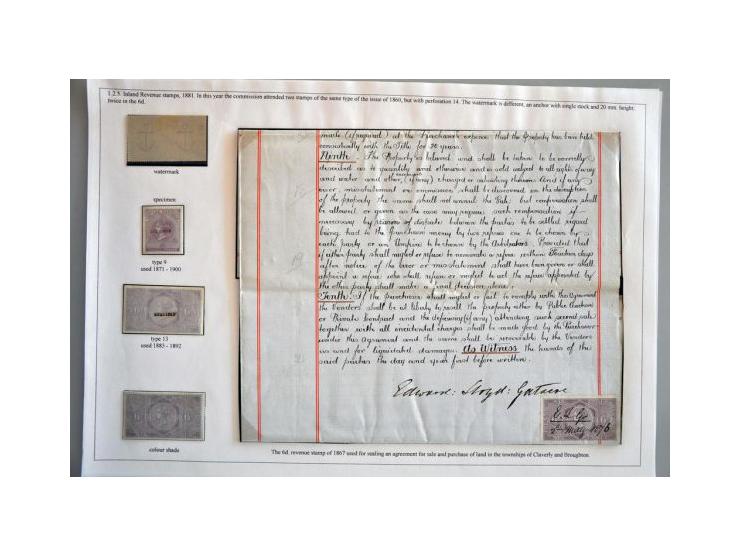 1.2.5. Inland Revenue stamps, 1881. In this year the commission attended two stamps of the same type of the issue of 1860, but with perforation 14. The watermark is different, an anchor with single stock and 20 mm. height.
twice in the 6d.
watermark
specimen
type 9
used 1871 - 1900
type 13
used 1883 - 1892
colour shade
made (if required) at the Purchasers expense that the Property has been held
consistently with the Title for 20 years.
Ninth. The Property is believed and shall be taken to be correctly
described as to quantity and otherwise and is sold subject to all rights of way
and water and other (if any) charged or subsisting thereon And if any
error, misstatement or ommission shall be discovered in the description
of the property the same shall not annul the Sale but compensation shall
be allowed or given as the case may require such compensation if
necessary by reason of dispute between the parties to be settled regard
being had to the purchase money by two referees one to be chosen by
each party or an Umpire to be chosen by the Arbitrators. Provided that
if either party shall neglect or refuse to nominate a referee within Fourteen days
after notice of the error or misstatement shall have been given or shall
appoint a referee who shall refuse or neglect to act the referee appointed by
the other party shall make a final decision alone.
Tenth. If the purchaser shall neglect or fail to comply with this Agreement
the Vendors shall be at liberty to resell the property either by Public Auction
or Private Contract and the deficiency (if any) attending such second sale
together with all incidental charges shall be made good by the Purchaser
under this Agreement and the same shall be recoverable by the Vendors
as and for liquidated damages. As Witness the hands of the
said parties the day and year first before written.
Edward Lloyd Gatacre
E. L. G.
2nd May 1876
The 6d. revenue stamp of 1867 used for sealing an agreement for sale and purchase of land in the townships of Claverly and Broughton